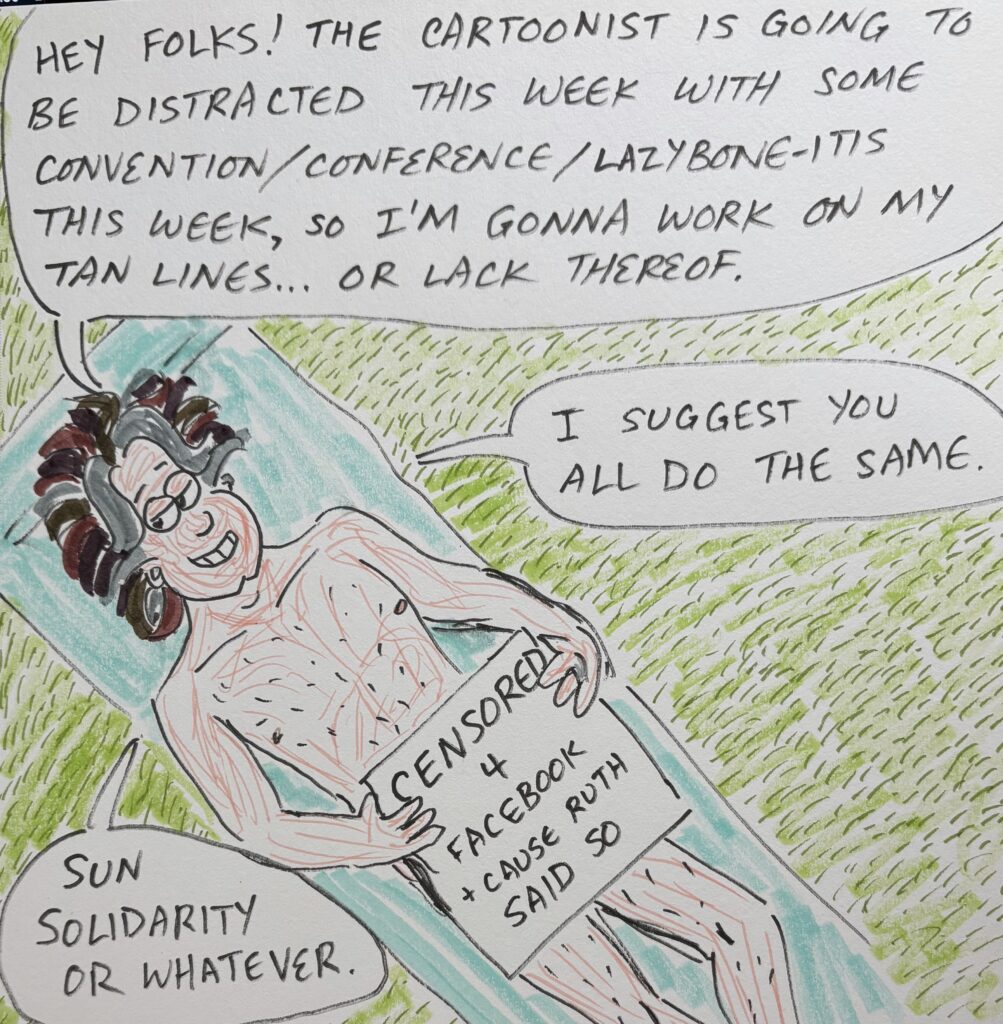 HEY FOLKS! THE CARTOONIST IS GOING TO
BE DISTRACTED THIS WEEK WITH SOME
CONVENTION/CONFERENCE/LAZYBONE-ITIS
THIS WEEK, SO I'M GONNA WORK ON MY
TAN LINES... OR LACK THEREOF.
I SUGGEST YOU
ALL DO THE SAME.
CENSORED
4
FACEBOOK
+ CAUSE RUTH
SAID SO
SUN
SOLIDARITY
OR WHATEVER.